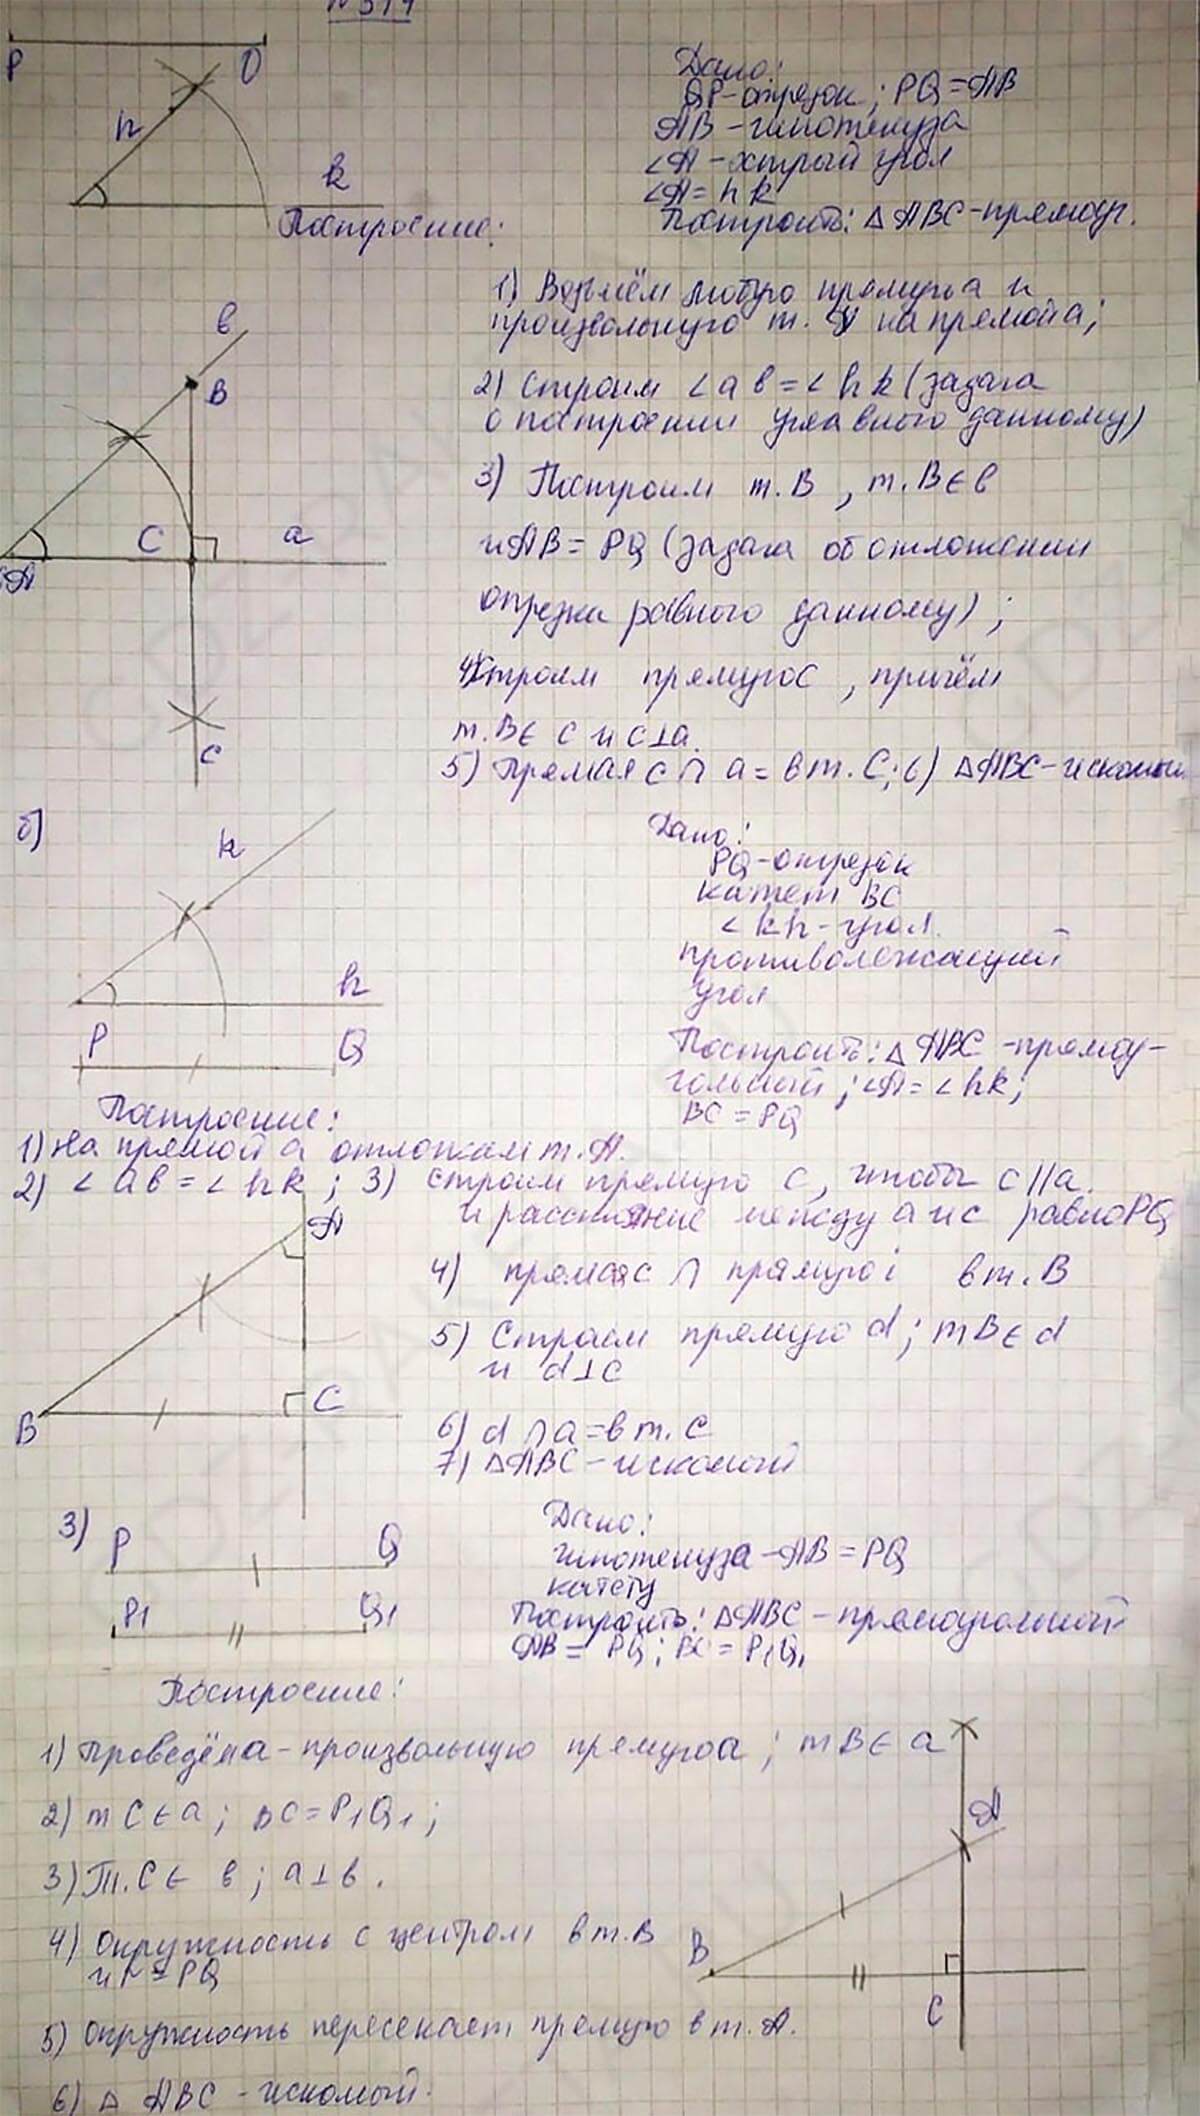 №314
P
Q
h
k
Дано:
QP-отрезок; PQ=AB
AB - гипотенуза
∠A - острый угол
∠A = hk
Построить: △ABC-прямоуг.
Построение:
1) Возьмём любую прямую a и
произвольную т. на прямой a;
2) Строим ∠ab=∠hk (задача
о построении угла равного данному)
3) Построим т.B, т.B∈b
и AB = PQ (задача об отложении
отрезка равного данному);
4) Строим прямую c, причём
т.B∈ c и c⊥a.
5) Прямая c ∩ a = в т.C; 6) △ABC-искомый
b
B
C
a
A
c
б)
k
h
P
Q
Дано:
PQ-отрезок
катет BC
∠kh-угол.
противолежащий
угол
Построить: △ABC -прямоу-
гольный; ∠A=∠hk;
BC = PQ
Построение:
1) На прямой a отложим т.A.
2) ∠ab=∠hk; 3) строим прямую c, чтобы c||a.
и расстояние между a и c равно PQ
4) прямая c ∩ прямую в т.B
5) Строим прямую d; тB∈d
и d⊥c
6) d ∩ a = в т.C
7) △ABC - искомый
A
B
C
3)
P
Q
P1
Q1
Дано:
гипотенуза -AB = PQ
катету
Построить: △ABC - прямоугольный
AB = PQ; BC = P1Q1
Построение:
1) Проведём a - произвольную прямую a; тB∈a
2) тC∈a; BC=P1Q1;
3) т.C∈ b; a⊥b.
4) Окружность с центром в т.B
и r=PQ
5) Окружность пересекает прямую в т.A.
6) △ ABC - искомый.
A
B
C